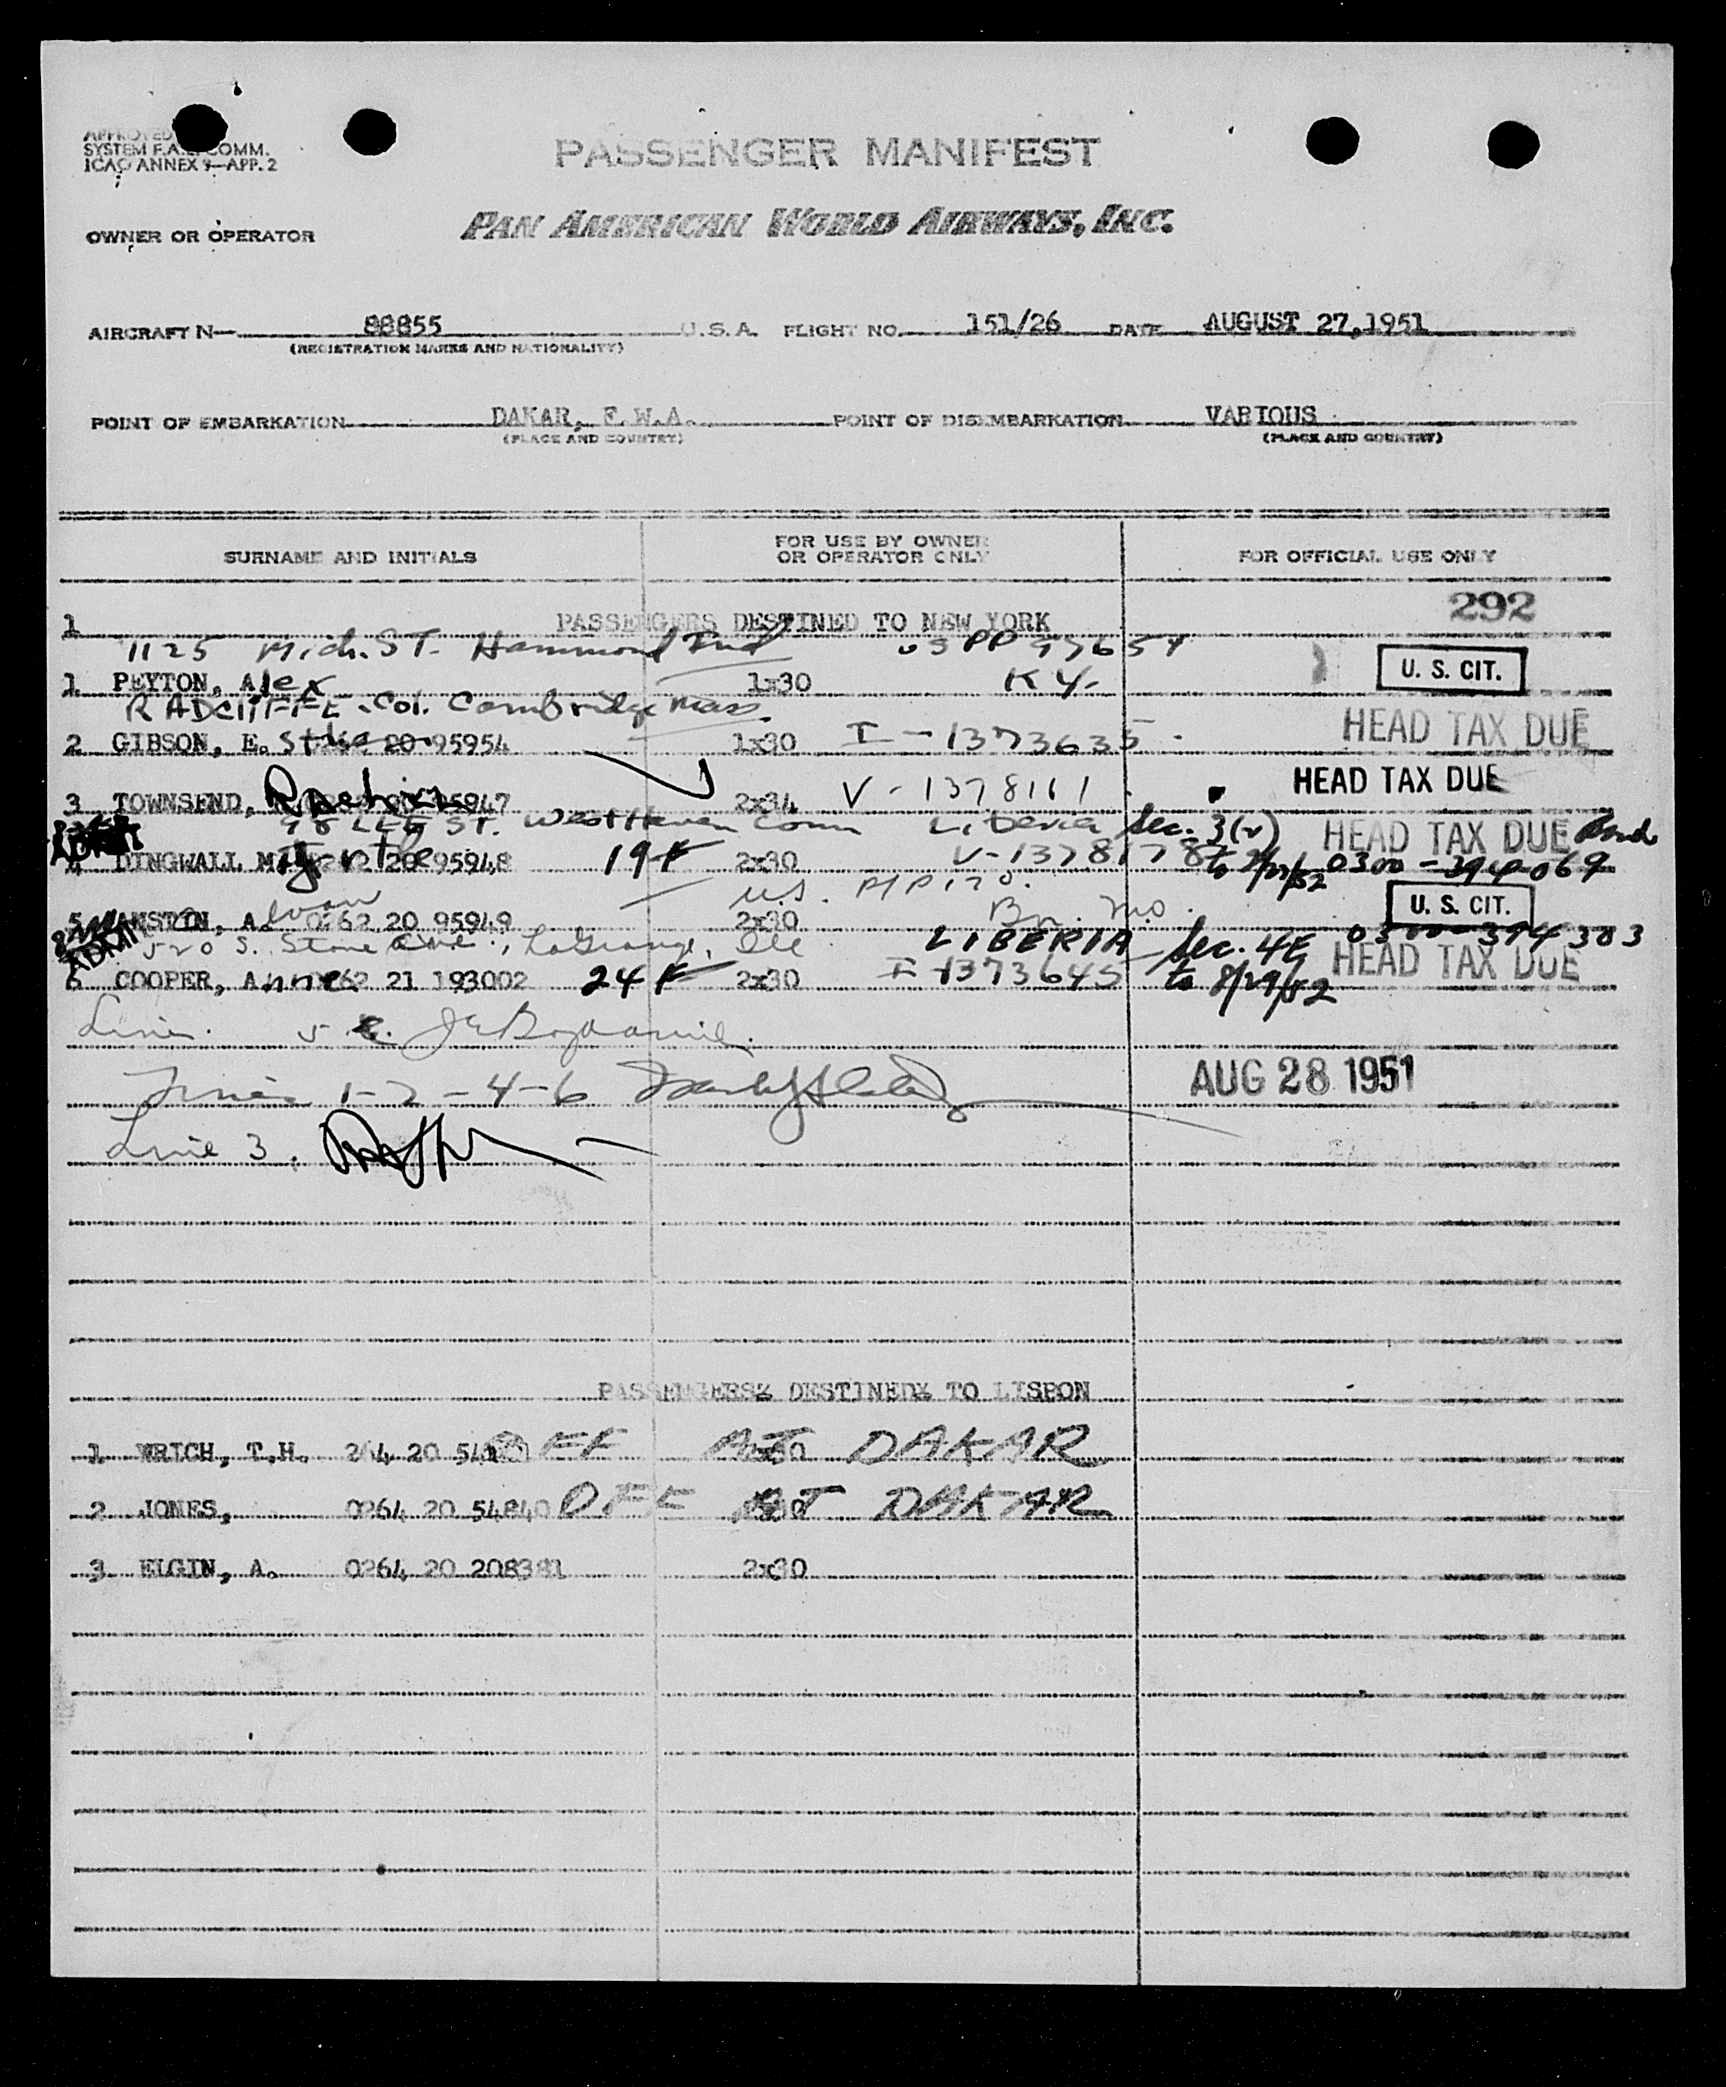 APPROVED
SYSTEM F.A.L. COMM.
ICAO ANNEX 9—APP. 2
PASSENGER MANIFEST
OWNER OR OPERATOR PAN AMERICAN WORLD AIRWAYS, INC.
AIRCRAFT N— 88855 U.S.A. FLIGHT NO. 151/26 DATE AUGUST 27,1951
(REGISTRATION MARKS AND NATIONALITY)
POINT OF EMBARKATION DAKAR, F.W.A. POINT OF DISEMBARKATION VARIOUS
(PLACE AND COUNTRY) (PLACE AND COUNTRY)
SURNAME AND INITIALS FOR USE BY OWNER OR OPERATOR ONLY FOR OFFICIAL USE ONLY
292
1 PASSENGERS DESTINED TO NEW YORK
1125 Mich. ST. Hammond Ind US PP 97654
1 PEYTON, Alex 1x30 KY. U. S. CIT.
RADCliFFE - Col. Cambridge Mass.
2 GIBSON, E. 20 95954 1x30 I-1373635 HEAD TAX DUE
3 TOWNSEND, 95947 2x34 V-1378161 HEAD TAX DUE
98 LEE ST. West Haven Conn Liberia Sec. 3(2) HEAD TAX DUE Bond
ADMIT
4 DINGWALL M. 20 95948 19 F 2x30 V-1378178 to 8/27/52 0300-394069
U.S.
5 AMSTIN, A. 0262 20 95949 2x30 Bn. Mo. U. S. CIT.
ADMIT
520 S. Stone Ave., LaGrange, Ill LIBERIA Sec. 4E 0300-394303
6 COOPER, Anne 0262 21 193002 24 F 2x30 I-1373645 to 8/29/52 HEAD TAX DUE
Line 5
Lines 1-2-4-6 AUG 28 1951
Line 3.
PASSENGERSX DESTINEDX TO LISBON
1 WRICH, T.H. 264 20 OFF AT DAKAR
2 JONES, 0264 20 54840 OFF AT DAKAR
3 ELGIN, A. 0264 20 208381 2x30